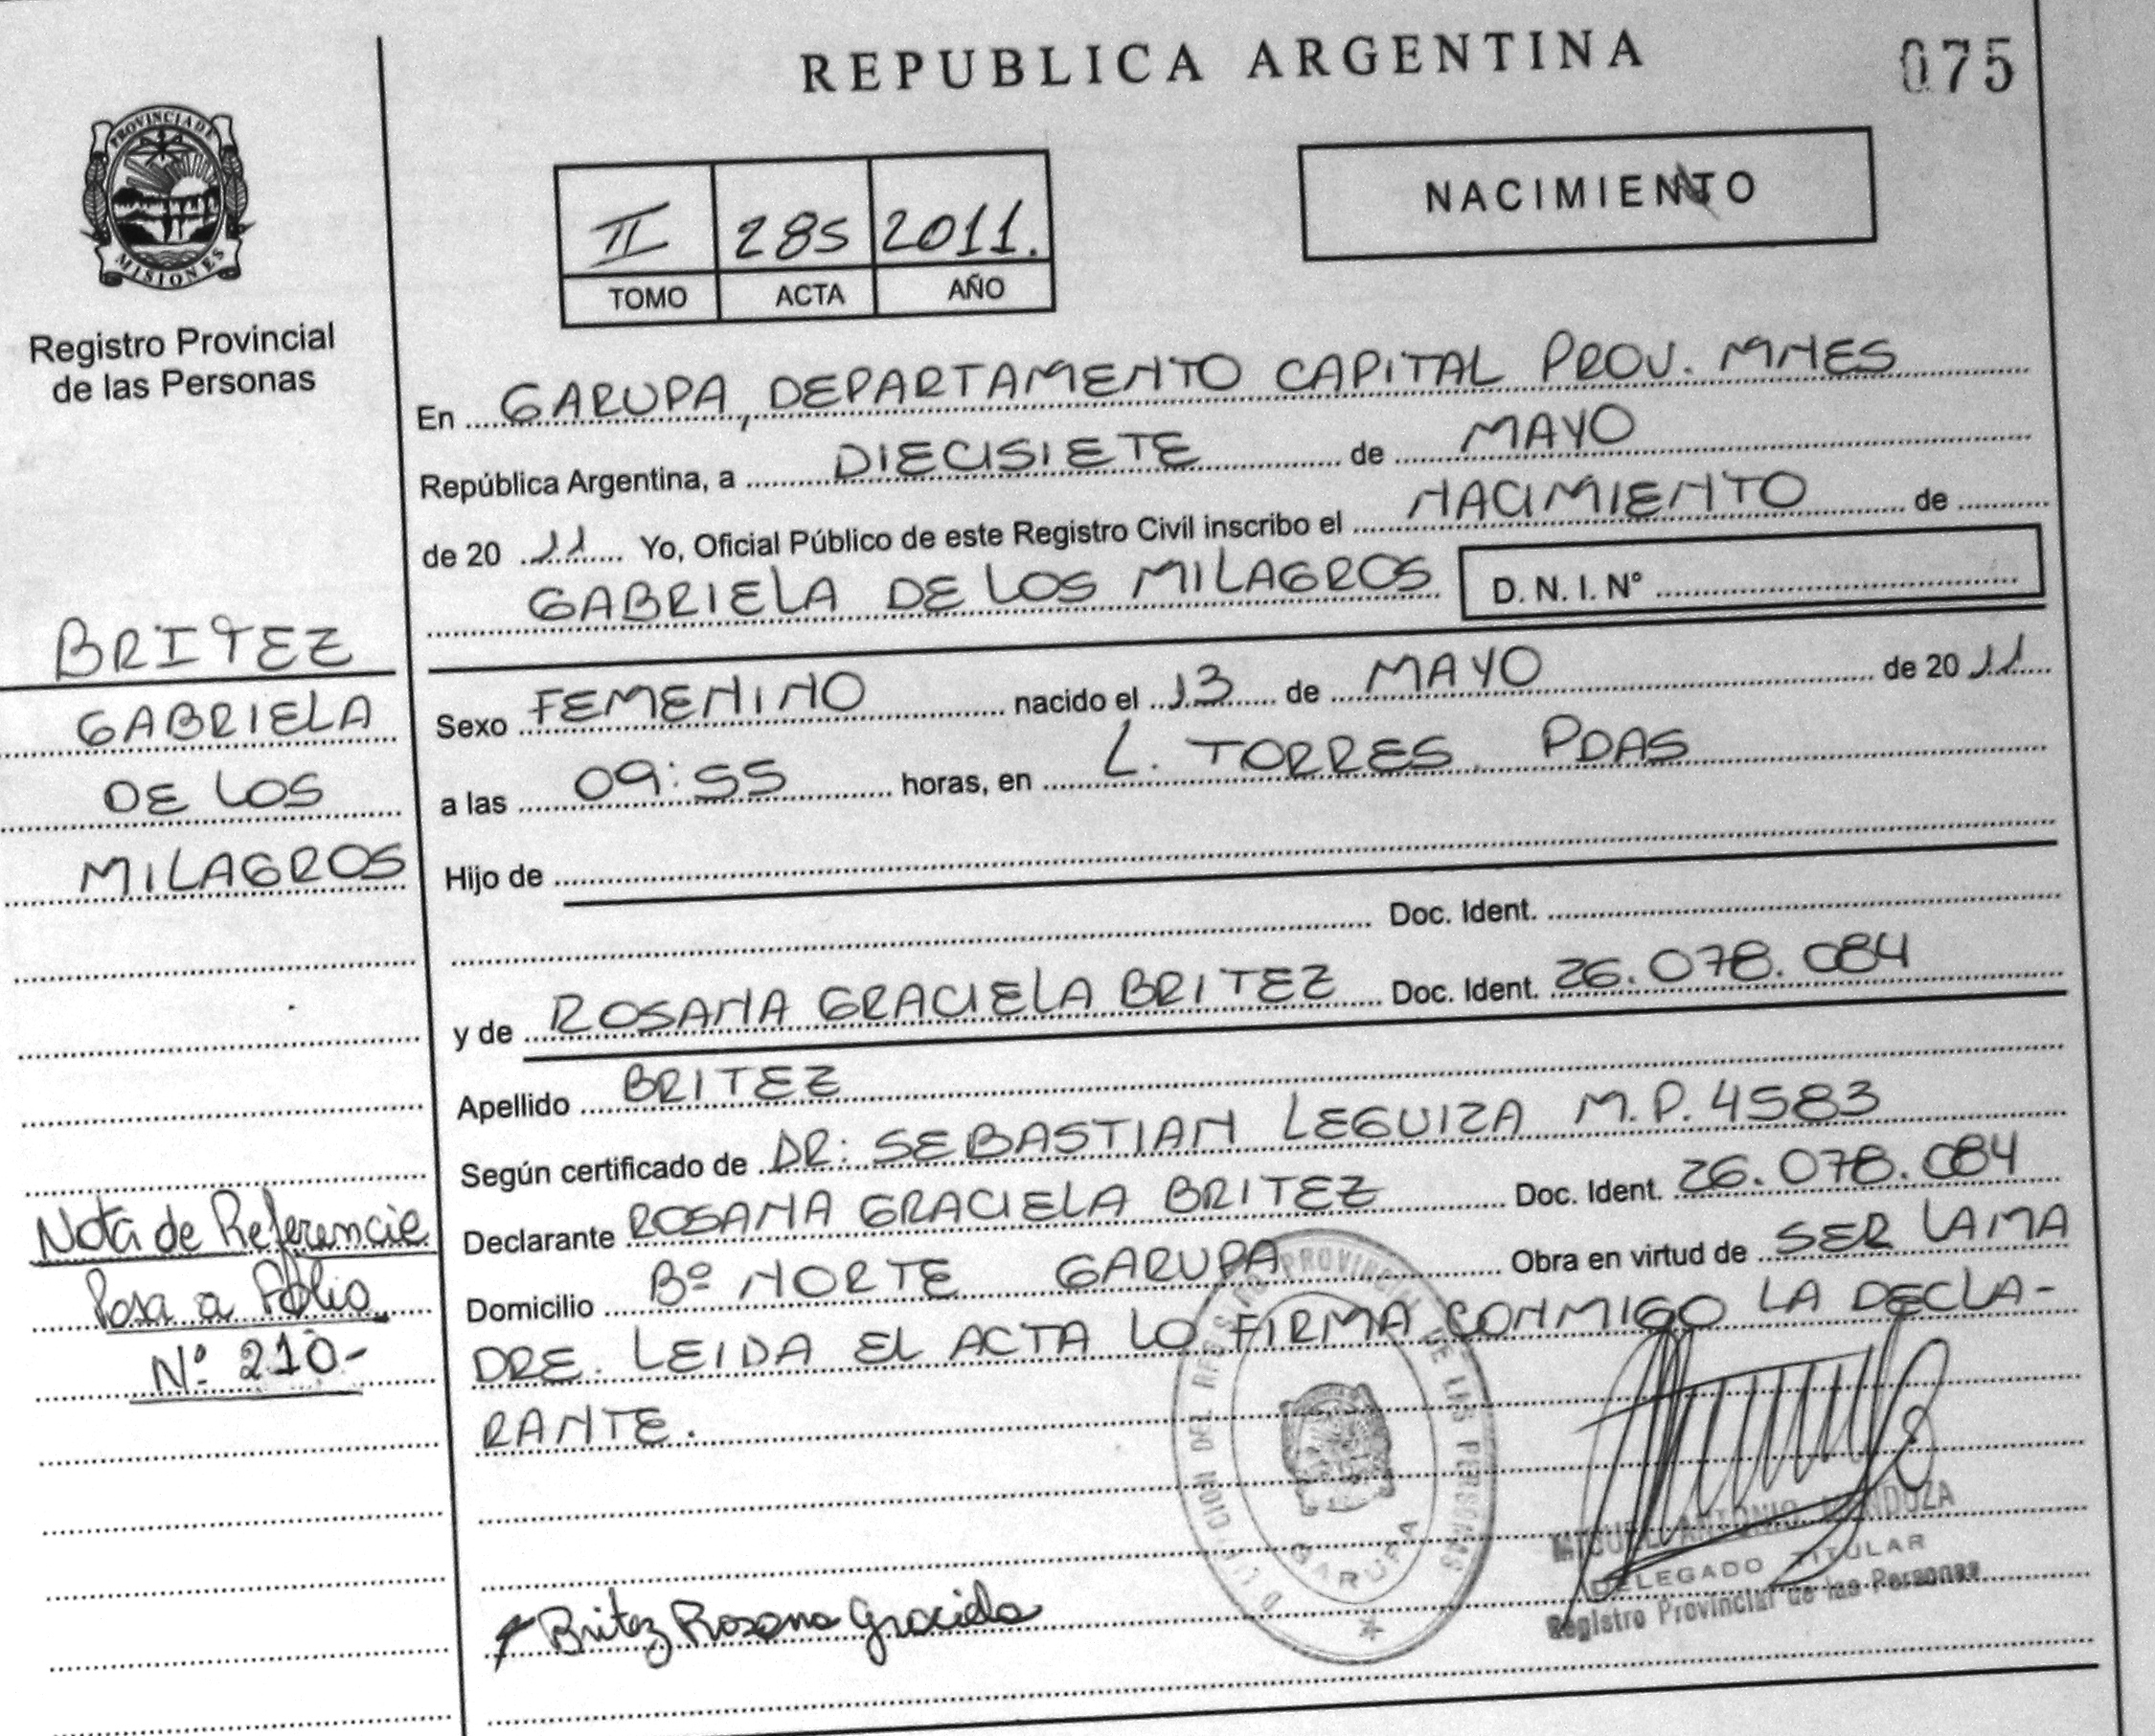 REPUBLICA ARGENTINA
075
PROVINCIA DE
MISIONES
Registro Provincial
de las Personas
II 285 2011.
TOMO ACTA AÑO
NACIMIENTO
En GARUPA, DEPARTAMENTO CAPITAL PROV. MNES
República Argentina, a DIECISIETE de MAYO
de 20 11 Yo, Oficial Público de este Registro Civil inscribo el NACIMIENTO de
GABRIELA DE LOS MILAGROS
D. N. I. Nº
BRITEZ
GABRIELA
DE LOS
MILAGROS
Sexo FEMENINO nacido el 13 de MAYO de 20 11
a las 09:55 horas, en L. TORRES. PDAS
Hijo de
Doc. Ident.
y de ROSANA GRACIELA BRITEZ Doc. Ident. 26.078.084
Apellido BRITEZ
Según certificado de DR: SEBASTIAN LEGUIZA M.P. 4583
Declarante ROSANA GRACIELA BRITEZ Doc. Ident. 26.078.084
Domicilio Bº NORTE GARUPA Obra en virtud de SER LA MA
DRE. LEIDA EL ACTA LO FIRMA CONMIGO LA DECLA-
RANTE.
Nota de Referencie
Pasa a Folio
Nº 210-
DEL REGISTRO PROVINCIAL DE LAS PERSONAS
GARUPA
Britez Rosana Graciela
MIGUEL ANTONIO MENDOZA
DELEGADO TITULAR
Registro Provincial de las Personas